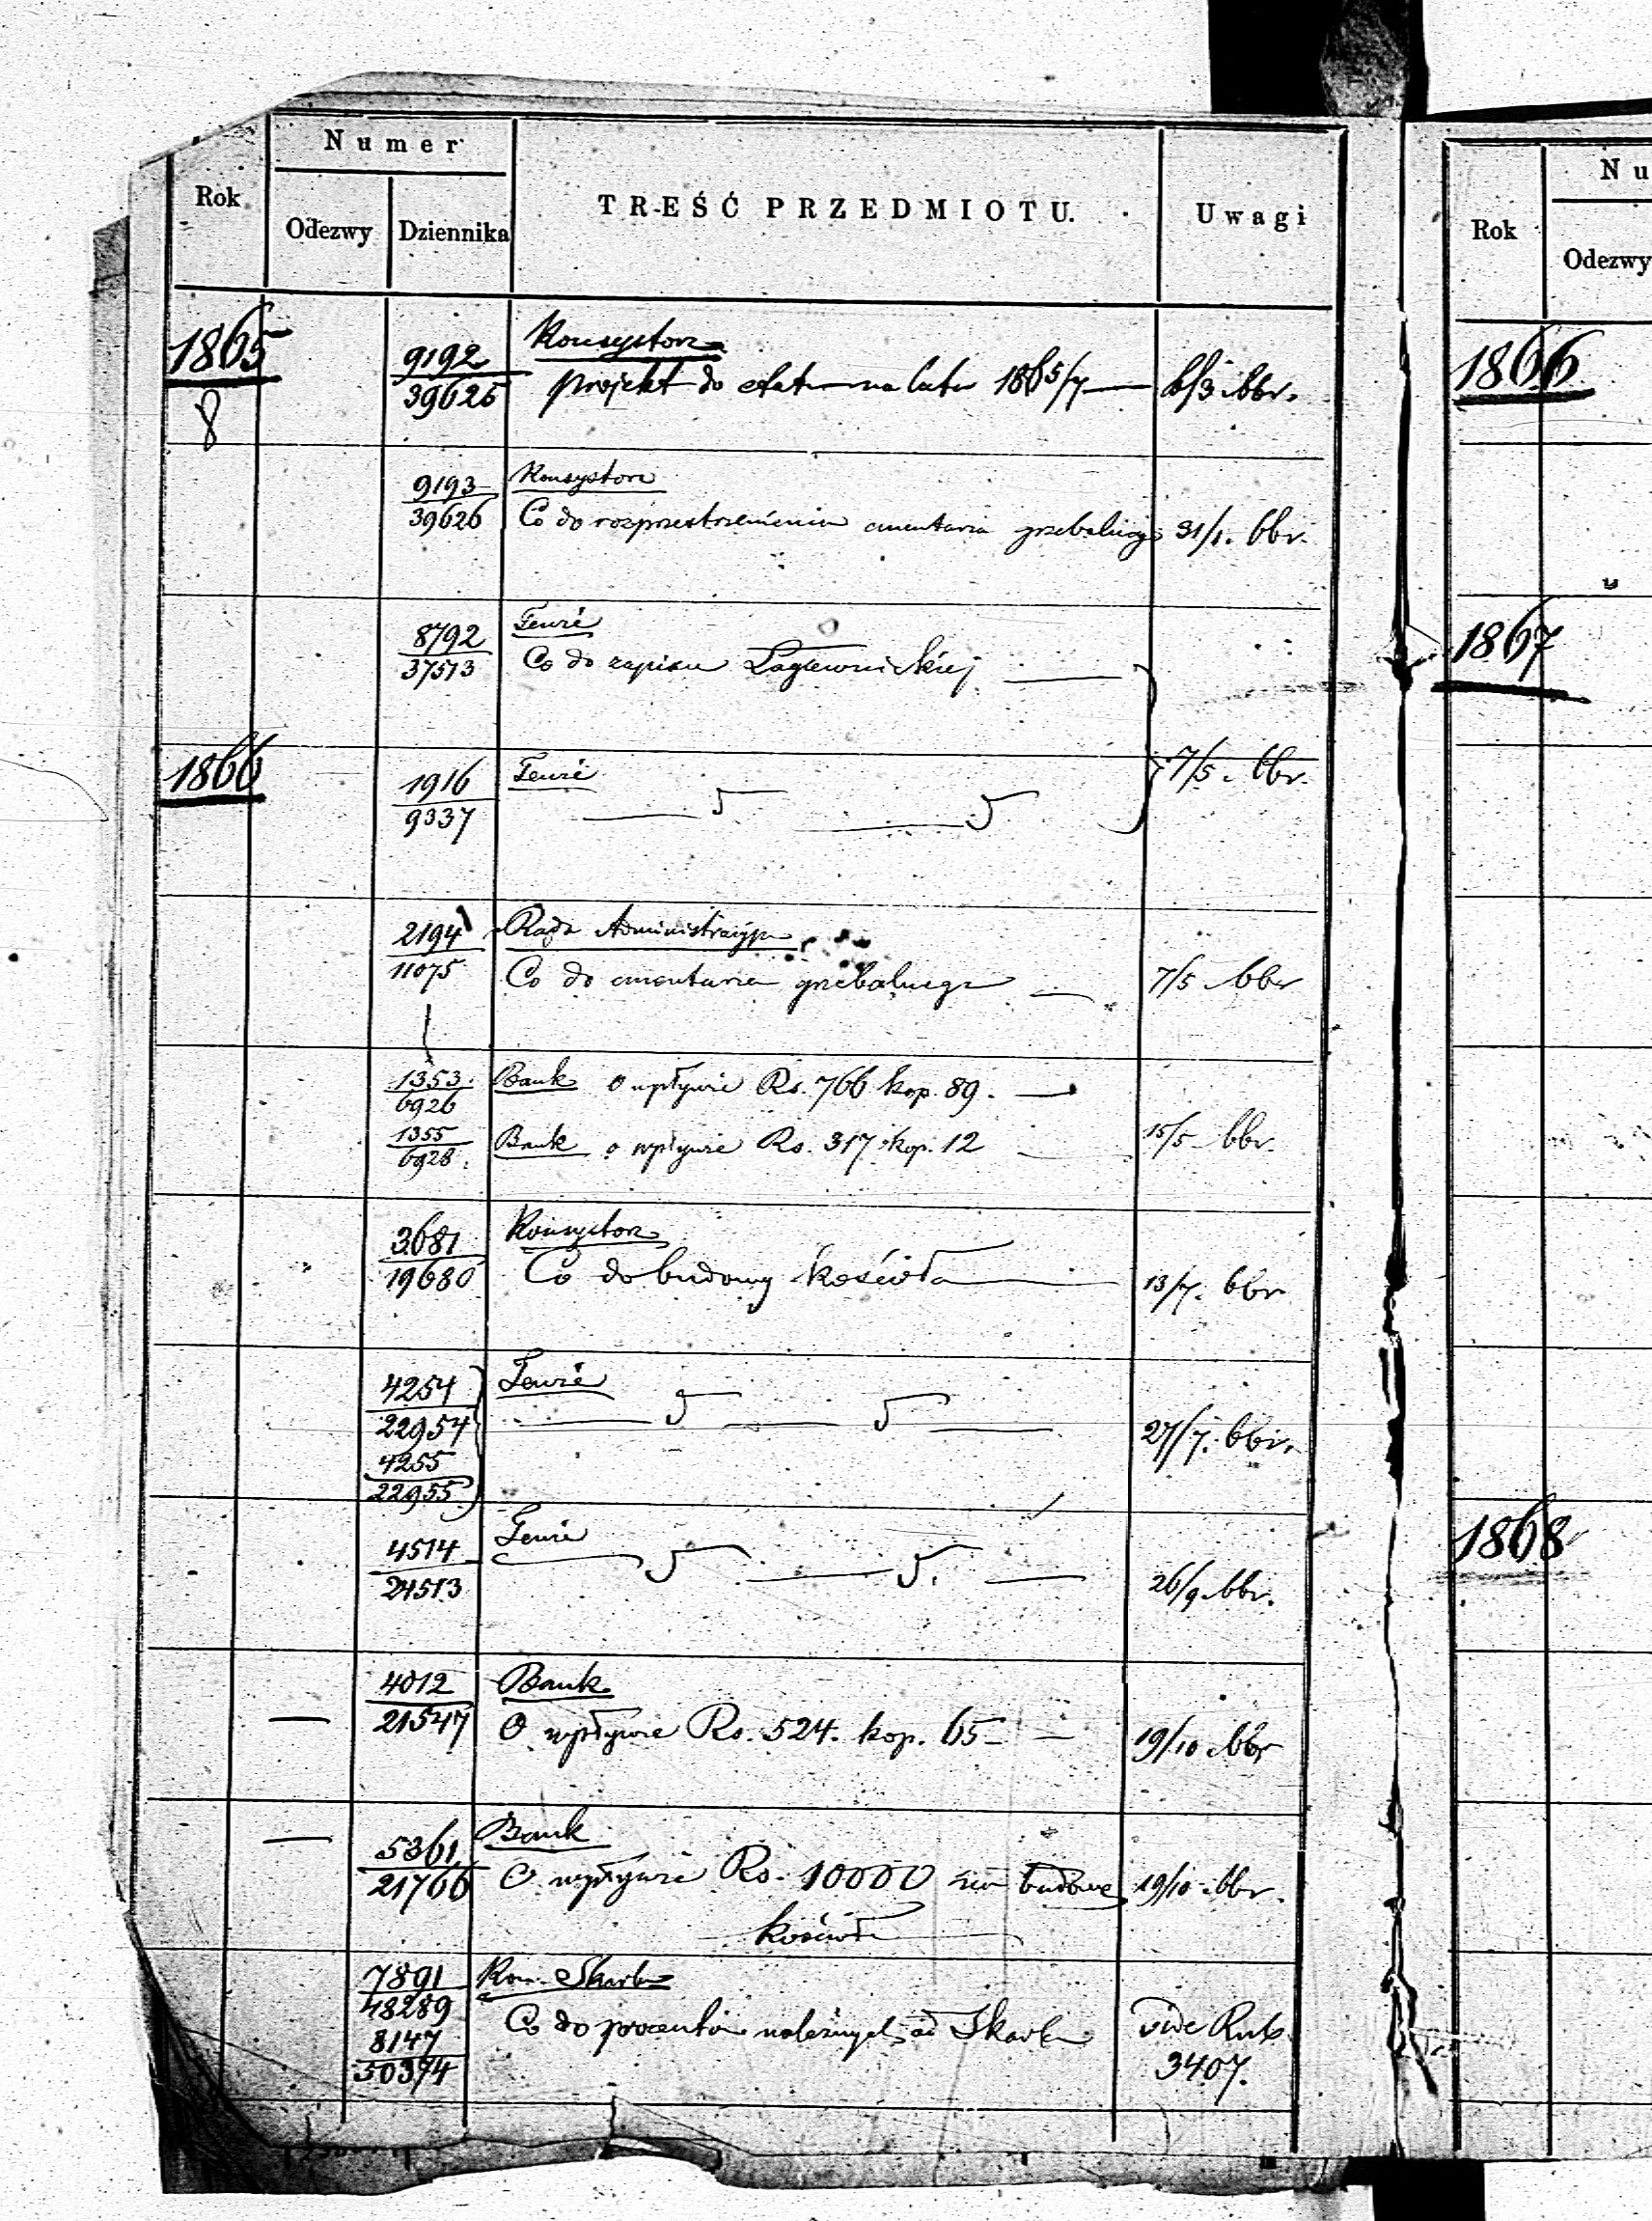 Numer
Rok
Odezwy
Dziennika
TREŚĆ PRZEDMIOTU.
Uwagi
1865
8
9192
39625
Konsystorz
projekt do etatu na lata 1865/7
6/3 bbr.
9193
39626
Konsystorz
Co do rozprzestrzenienia cmentarza grzebalnego
31/1. bbr.
8792
37513
Tenże
Co do zapisu Łagiewnickiej
1866
1916
9337
Tenże
7/5. bbr.
2194
11075
Rada Administracyjna
Co do cmentarza grzebalnego
7/5 bbr
1353
6926
Bank o wpływie Rs. 766 kop. 89.
1355
6928.
Bank o wpływie Rs. 317 kop. 12
15/5 bbr.
3681
19680
Konsystorz
Co do budowy kościoła
13/7. bbr
4254
22954
4255
22955
Tenże
27/7. bbr.
4514
24513
Tenże
26/9 bbr.
4012
21547
Bank
O wpływie Rs. 524. kop. 65
19/10 bbr
5361
21766
Bank
O wpływie Rs. 10000 na budowę
kościoła
19/10 bbr.
7891
48289
8147
50374
Kom. Skarbu
Co do procentów należnych od Skarbu
vide Rub.
3407.
Nu
Rok
Odezwy
1866
1867
1868